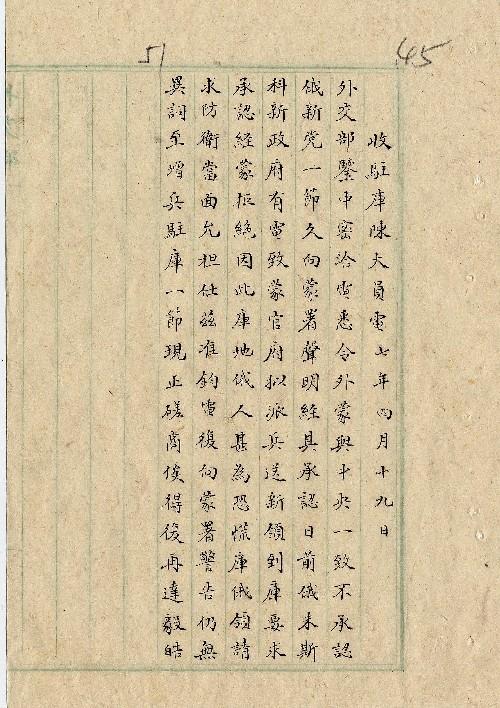 45
51
收駐庫陳大員電七年四月十九日
外交部鑒中密洽電悉令外蒙與中央一致不承認
俄新党一節久向蒙署聲明經其承認日前俄木斯
科新政府有電致蒙官府拟派兵送新領到庫要求
承認經蒙拒絶因此庫地俄人甚為恐慌庫俄領請
求防衛當面允担任茲准鈞電復向蒙署警告仍無
異詞至增兵駐庫一節現正磋商俟得後再達毅皓